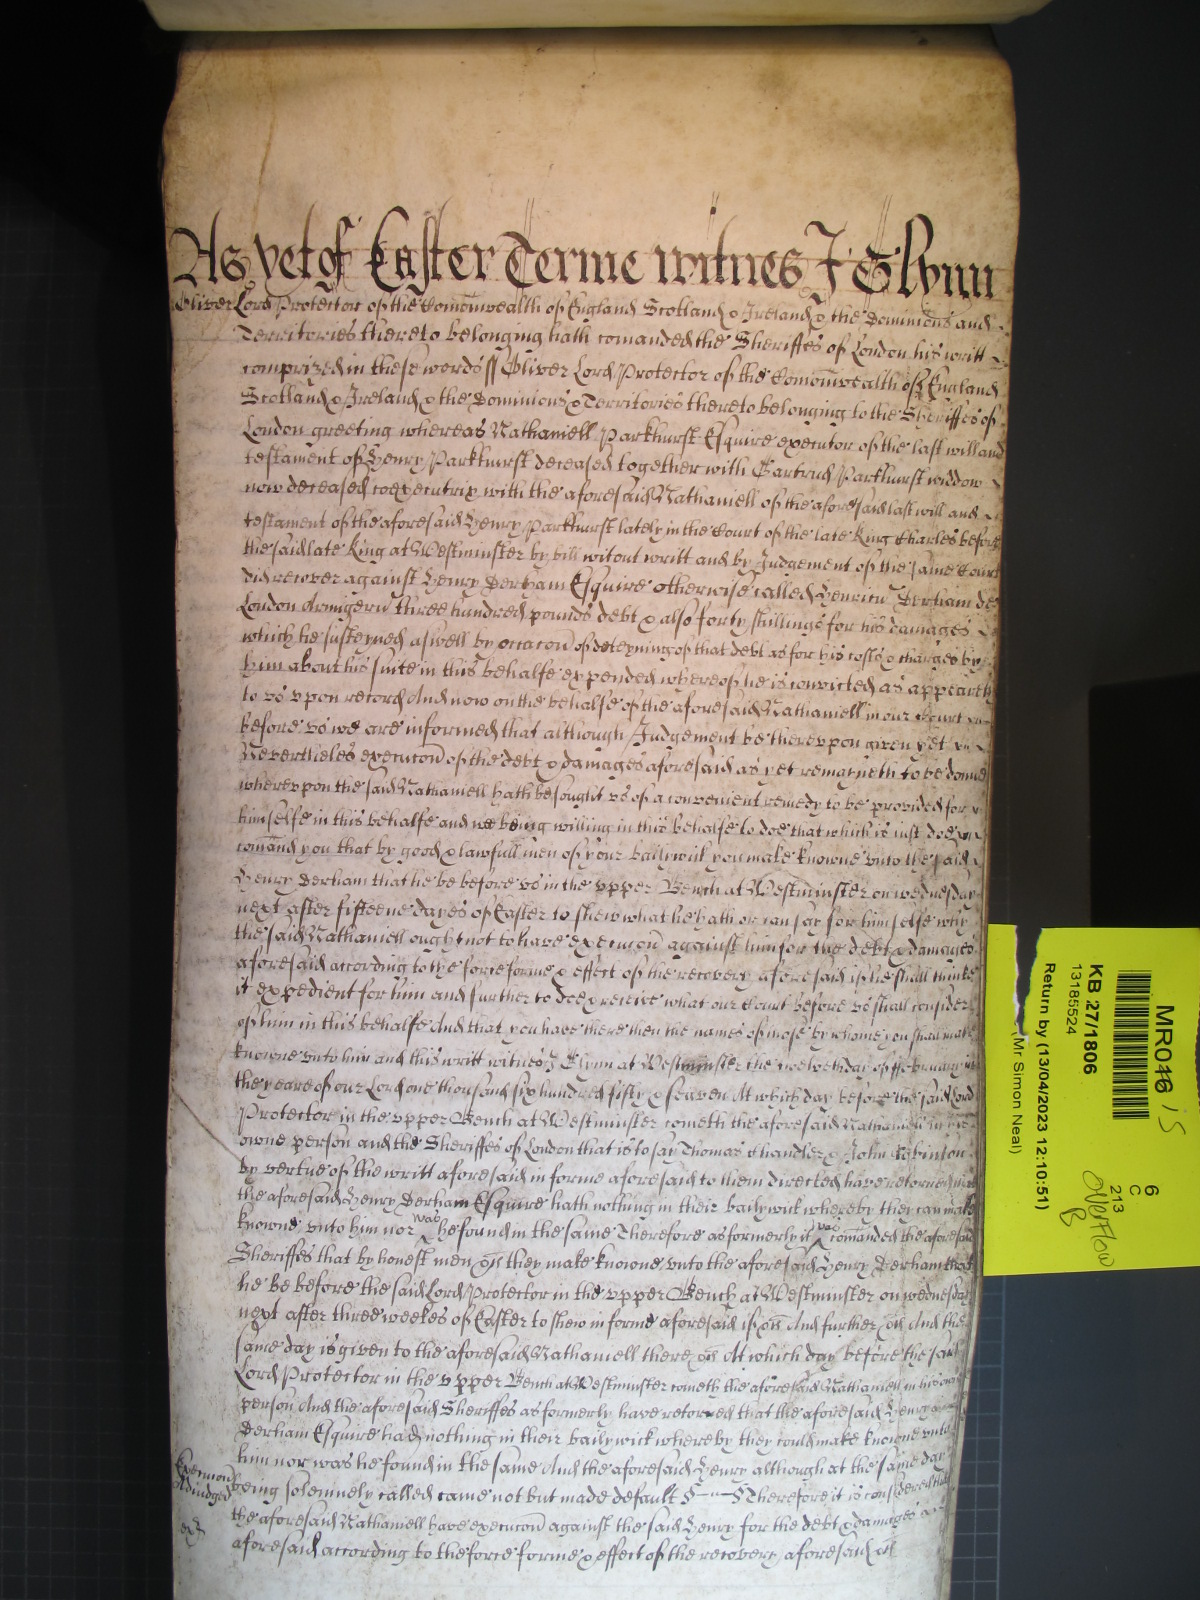 As yet of Easter Terme witnes J Glynn
Oliver Lord Protector of the Comonwealth of England Scotland & Ireland & the Dominions and
Territories thereto belonging hath comanded the Sheriffes of London his writt
comprized in these words ss Oliver Lord Protector of the Comonwealth of England
Scotland & Ireland & the Dominions & Territories thereto belonging to the Sheriffes of
London greeting whereas Nathaniell Parkhurst Esquire executor of the last will and
testament of Henry Parkhurst deceased together with Gartrud Parkhurst widdow
now deceased coexecutrix with the aforesaid Nathaniell of the aforesaid last will and
testament of the aforesaid Henry Parkhurst lately in the Court of the late King Charles before
the said late King at Westminster by bill witout writt and by Judgement of the same Court
did recover against Henry Derham Esquire otherwise called Henricu Derham de
London Armigeru three hundred pounds debt & also forty shillings for his damages
which he susteyned aswell by occacon of deteyning of that debt as for his costs & charges by
him about his suite in this behalfe expended whereof he is convicted as appeareth
to us upon record And now on the behalfe of the aforesaid Nathaniell in our Court
before us we are informed that although Judgement be thereupon given yet
Nevertheles execucon of the debt & damages aforesaid as yet remayneth to be donne
whereupon the said Nathaniell hath besought us of a convenient remedy to be provided for
himselfe in this behalfe and we being willing in this behalfe to doe that which is just doe
comand you that by good & lawfull men of your bailywick you make knowne unto the said
Henry Derham that he be before us in the upper Bench at Westminster on wednesday
next after fifteene dayes of Easter to shew what he hath or can say for himselfe why
the said Nathaniell ought not to have execucon against him for the debt & damages
aforesaid according to the force forme & effect of the recovery aforesaid if he shall thinke
it expedient for him and further to doe & receive what our Court before us shall consider
of him in this behalfe And that you have there then the names of those by whome you shall make
knowne unto him and this writt witnes J Glynn at Westminster the twelvth day of ffebruary in
the yeare of our Lord one thousand six hundred fifty & seaven At which day before the said Lord
Protector in the upper Bench at Westminster cometh the aforesaid Nathaniell in his
owne person and the Sheriffes of London that is to say Thomas Chandler & John Robinson
by vertue of the writt aforesaid in forme aforesaid to them directed have retorned that
the aforesaid Henry Derham Esquire hath nothing in their bailywick whereby they can make
knowne unto him nor was he found in the same Therefore as formerly it was comanded the aforesaid
Sheriffes that by honest men &c they make knowne unto the aforesaid Henry Derham that
he be before the said Lord Protector in the upper Bench at Westminster on wednesday
next after three weekes of Easter to shew in forme aforesaid if &c And further &c And the
same day is given to the aforesaid Nathaniell there &c At which day before the said
Lord Protector in the upper Bench at Westminster cometh the aforesaid Nathaniell in his owne
person And the aforesaid Sheriffes as formerly have retorned that the aforesaid Henry
Derham Esquire had nothing in their bailywick whereby they could make knowne unto
him nor was he found in the same And the aforesaid Henry although at the same day
Execucon
Adiudged
being solemnely called came not but made default § — § Therefore it is considered that
the aforesaid Nathaniell have execucon against the said Henry for the debt & damages
aforesaid according to the force forme & effect of the recovery aforesaid &c
MR046
KB 27/1806
13185524
Return by (13/04/2023 12:10:51)
(Mr Simon Neal)
6
C
213
Overflow
B